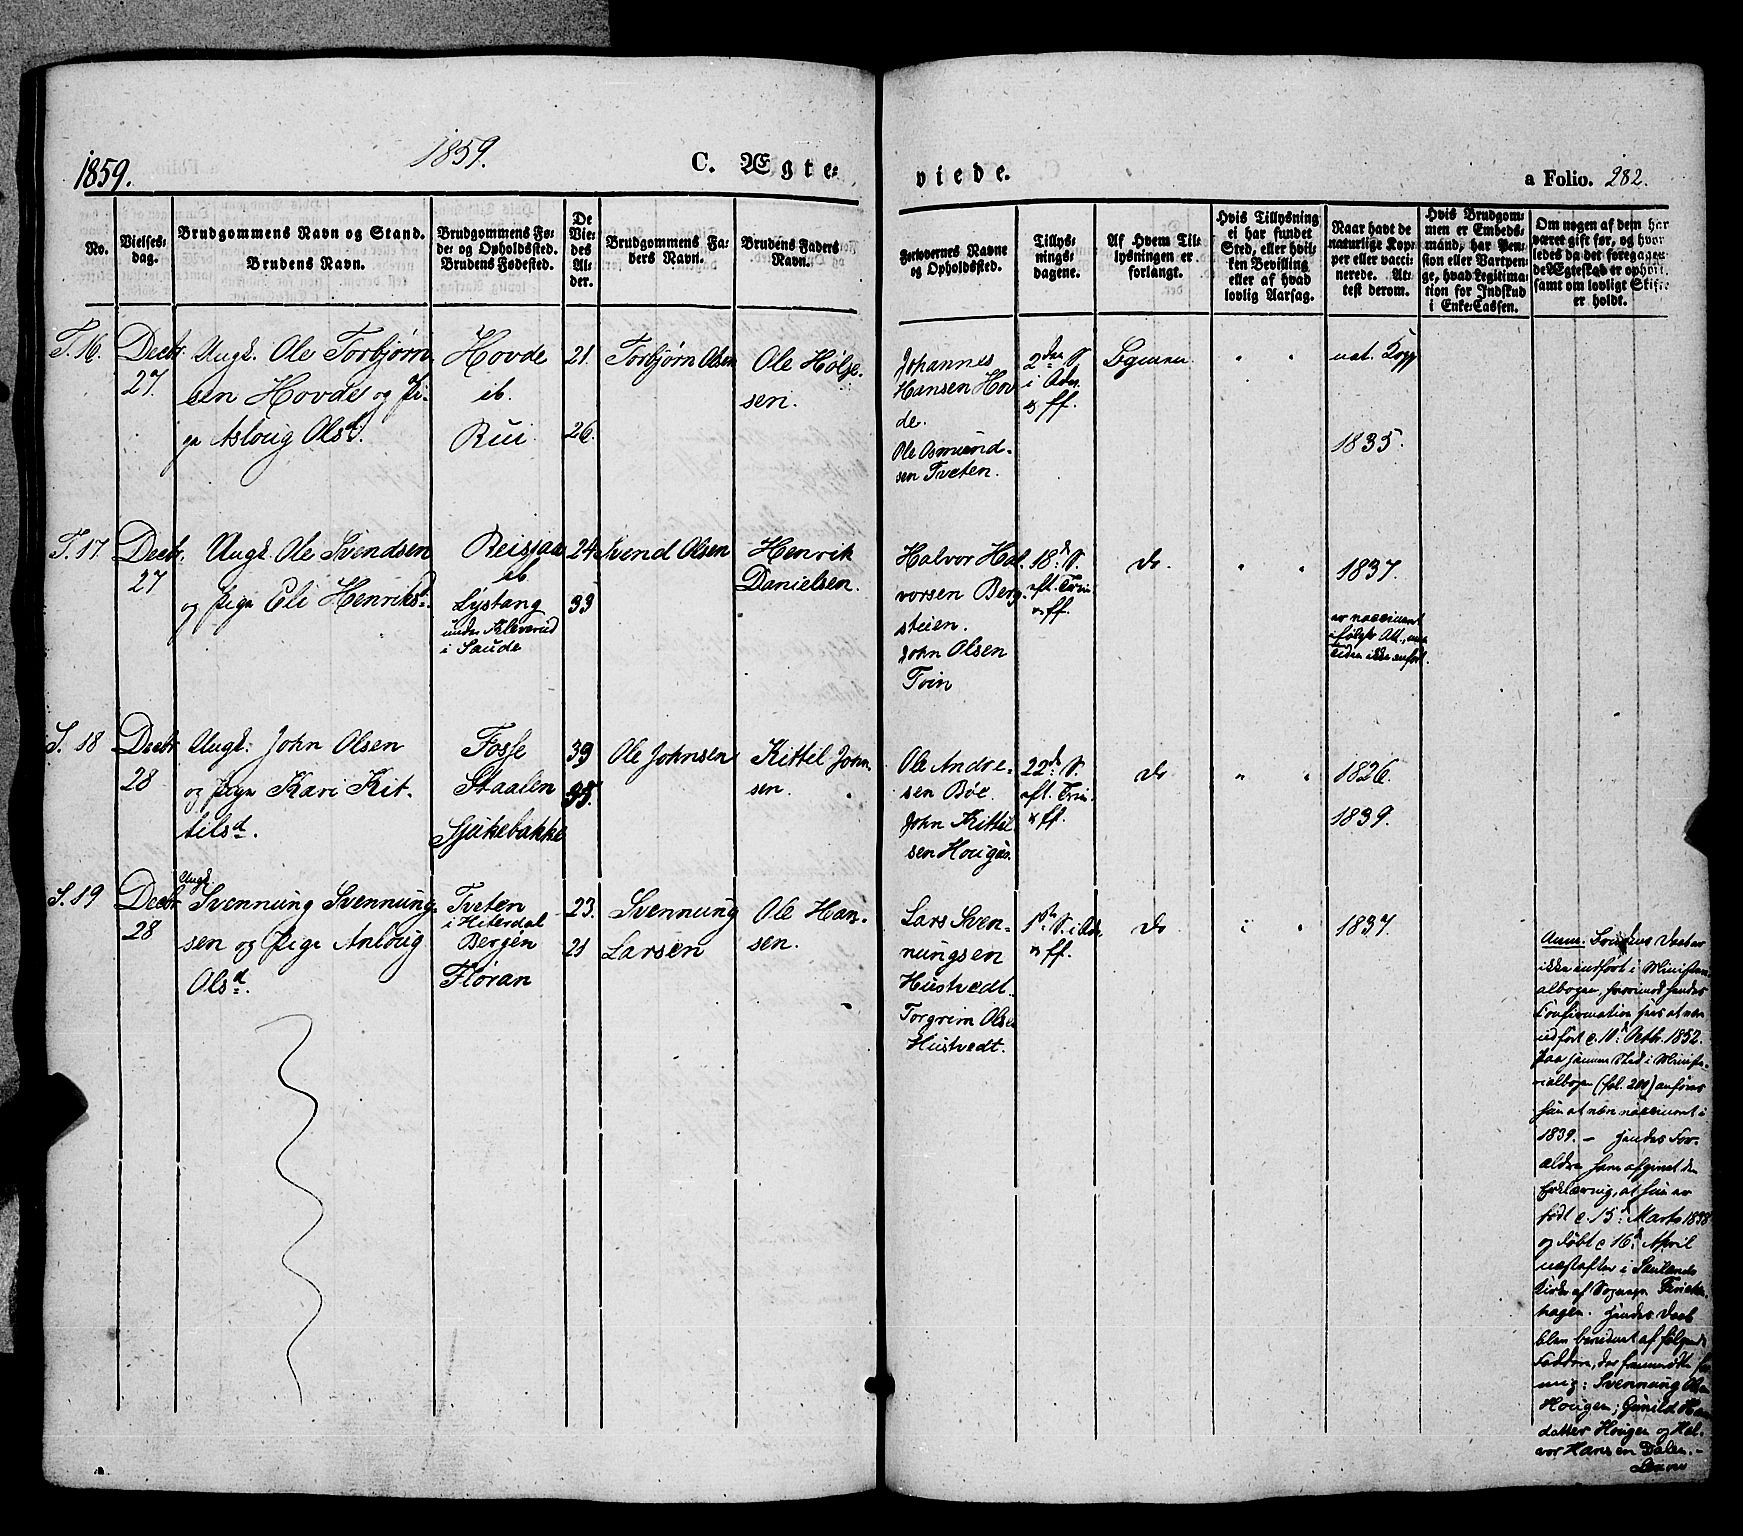 1859. 1859. C. Ægte=
viede. a Folio. 282.
No.
Vielses=
dag.
Brudgommens Navn og Stand.
Brudens Navn.
Brudgommens Fø=
de= og Opholdssted.
Brudens Fødested.
De
Vie=
des
Al=
der.
Brudgommens Fa=
ders Navn.
Brudens Faders
Navn.
Forlovernes Navne
og Opholdssted.
Tillys=
nings=
dagene.
Af Hvem Til=
lysningen er
forlangt.
Hvis Tillysning
ei har fundet
Sted, eller hvil=
ken Bevilling
eller af hvad
lovlig Aarsag.
Naar havt de
naturlige Kop=
per eller vacci=
nerede. At=
test derom.
Hvis Brudgom=
men er Embeds=
mand, har Pen=
sion eller Vartpen=
ge, hvad Legitima=
tion for Indskud
i Enke=Cassen.
Om nogen af dem har
været gift før, og hvor
ledes da det foregaaen=
de Ægteskab er ophørt,
samt om lovligt Skifte
er holdt.
T. 16.
Decbr.
27.
Ungk. Ole Torbjørn
sen Hovde og Pi-
ge Asloug Olsd.
Hovde
ib.
Rui.
21.
26.
Torbjørn Olsen
Ole Holje-
sen.
Johannes
Hansen Hov
de.
Ole Osmund-
sen Tveten.
2den S.
i Adv.
& ff.
nat. Kopp
1835.
T. 17
Decbr.
27
Ungk. Ole Svendsen
og Pige Eli Henriksd.
Reisjaa
ib
Lystang
under Kleverud
i Saude
24
33
Svend Olsen
Henrik
Danielsen.
Halvor Hal
vorsen Berg-
steien.
John Olsen
Toin
18d. S.
eft. Trin
& ff.
do.
1837.
er vaccineret
ifølge Att.,
Tiden ikke anført.
S. 18
Decbr.
28
Ungk. John Olsen
og Pige Kari Kit-
tilsd.
Fosse
Staalen
Sjukebakke
39
35.
Ole Johnsen
Kittil John
sen.
Ole Andre-
sen Bøe.
John Kittil
sen Hougen.
22de S.
eft. Trin.
& ff.
do
1826.
1839.
S. 19
Decbr.
28
Ungk.
Svennung Svennung
sen og Pige Anloug
Olsd.
Tveten
i Hiterdal
Bergen
Fløran
23.
21
Svennung
Larsen
Ole Han-
sen.
Lars Sven-
nungsen
Hustvedt.
Torgrim Olsen
Hustvedt.
1ste S. i Adv.
& ff.
do
1837.
Anm. Brudens Daab er
ikke indført i Ministeri
albogen, hvorimod hendes
Confirmation sees at være
udført d. 10d Octbr. 1852.
Paa samme Sted i Ministe-
rialbogen (fol. 200) anføres
hun at være vaccineret i
1839. – Hendes For-
ældre have afgivet den
Erklæring, at hun er
født d. 15d Marts 1838
og døbt d. 16d April
næstefter i Saulands
Kirke af Sognepr.
hagen. Hendes Daab
blev bevidnet af følgende
Faddere, der fremmødte for
mig: Svennung Olsen
Hougen; Gunild Hans
datter Hougen og Hal-
vor Hansen Dalen. –